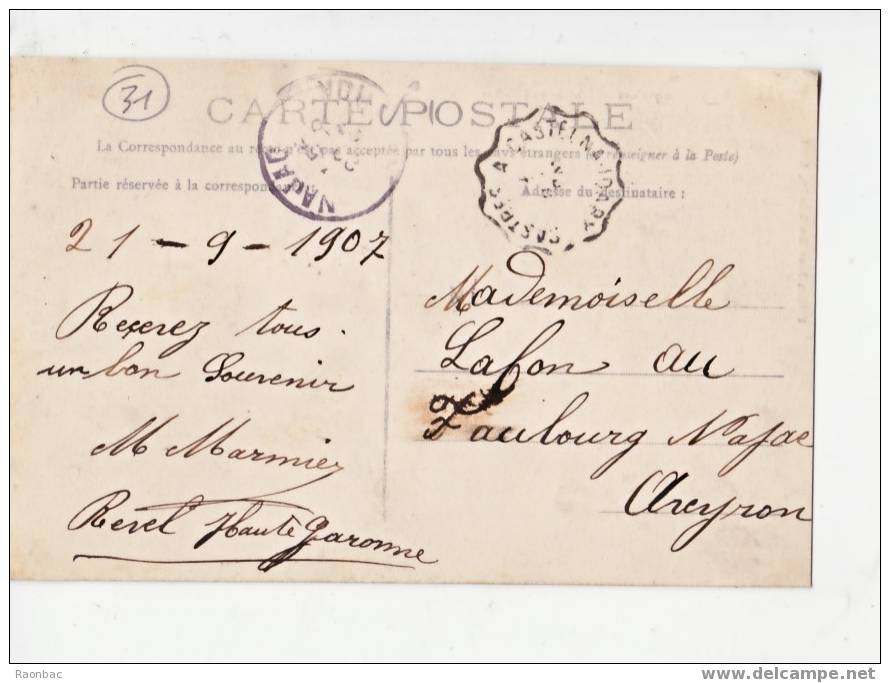 31
CARTE POSTALE
La Correspondance au recto n'est pas acceptée par tous les pays étrangers (se renseigner à la Poste)
Partie réservée à la correspondance
Adresse du destinataire :
NAJAC
CASTRES A CASTELNAUDARY
21 - 9 - 1907
Recerez tous
un bon Souvenir
M Marmiez
Revel Haute Garonne
Mademoiselle
Lafon au
Faubourg Najac
Aveyron
Raonbac
www.delcampe.net